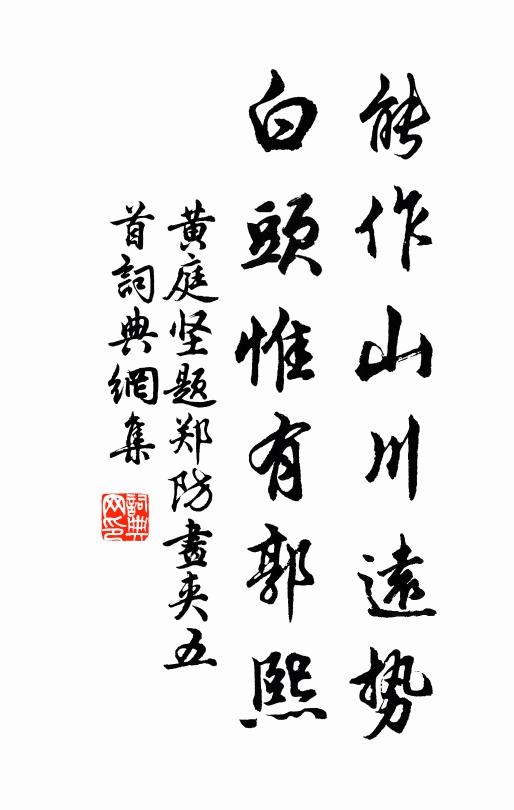 能作山川遠势
白頭惟有郭熙
黄庭坚题郑防畫夹五
首詞典網集
詞典网印